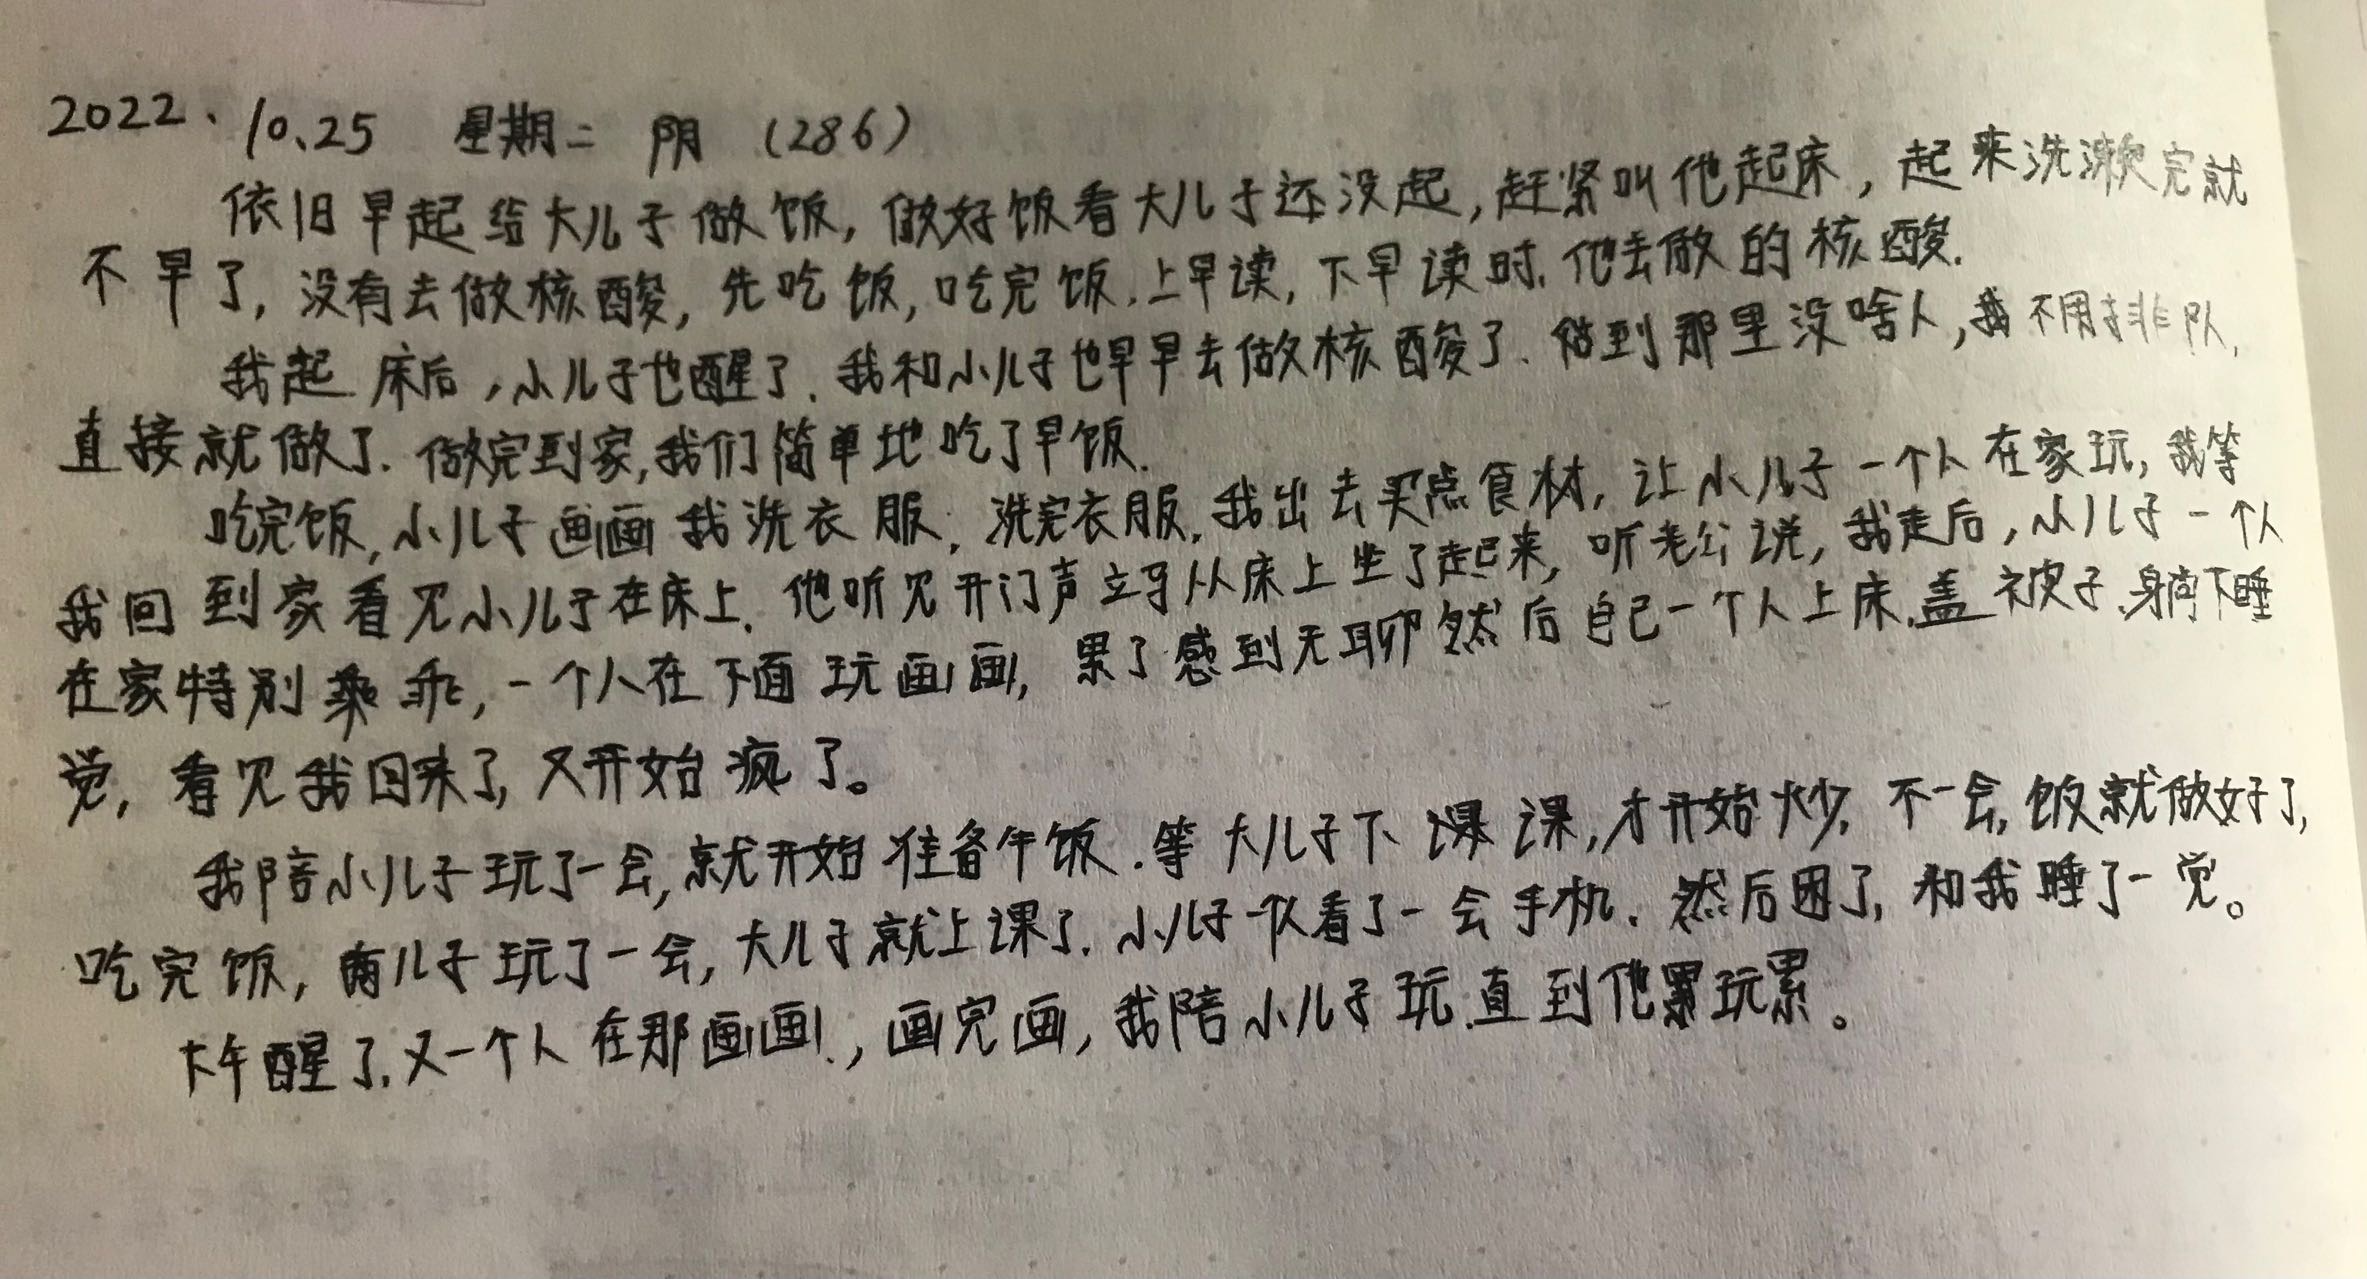 2022、10.25 星期二 阴 (286)
依旧早起给大儿子做饭,做好饭看大儿子还没起,赶紧叫他起床,起来洗漱完就
不早了,没有去做核酸,先吃饭,吃完饭.上早读,下早读时.他去做的核酸.
我起床后,小儿子也醒了.我和小儿子也早早去做核酸了.到那里没啥人,我不用排队,
直接就做了.做完到家,我们简单地吃了早饭.
吃完饭,小儿子画画我洗衣服,洗完衣服,我出去买点食材,让小儿子一个人在家玩,我等
我回到家看见小儿子在床上.他听见开门声立马从床上坐了起来,听老公说,我走后,小儿子一个人
在家特别乖乖,一个人在下面玩画画,累了感到无聊然后自己一个人上床.盖被子.躺下睡
觉,看见我回来了,又开始疯了。
我陪小儿子玩了一会,就开始准备午饭.等大儿子下课课,才开始炒.不一会,饭就做好了,
吃完饭,两儿子玩了一会,大儿子就上课了.小儿子一个人看了一会手机.然后困了,和我睡了一觉。
下午醒了.又一个人在那画画.,画完画,我陪小儿子玩.直到他累玩累。